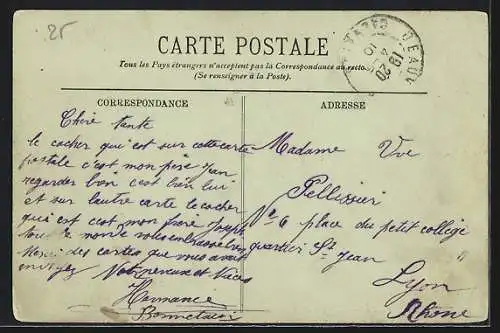 25
CARTE POSTALE
Tous les Pays étrangers n'acceptent pas la Correspondance au recto
(Se renseigner à la Poste).
CORRESPONDANCE
ADRESSE
Chère tante
le cocher qui est sur cette carte
postale c'est mon père Jean
regarder bien c'est bien lui
et sur lautre carte le cocher
qui est c'est mon frère Joseph
tout le monde vous embrasse bien
Merci des cartes que mes avait
envoyez Votre neveux et Nièces
Hermance
Madame Vve
Pellissier
No 6 place du petit collège
quartier St Jean
Lyon
Rhône